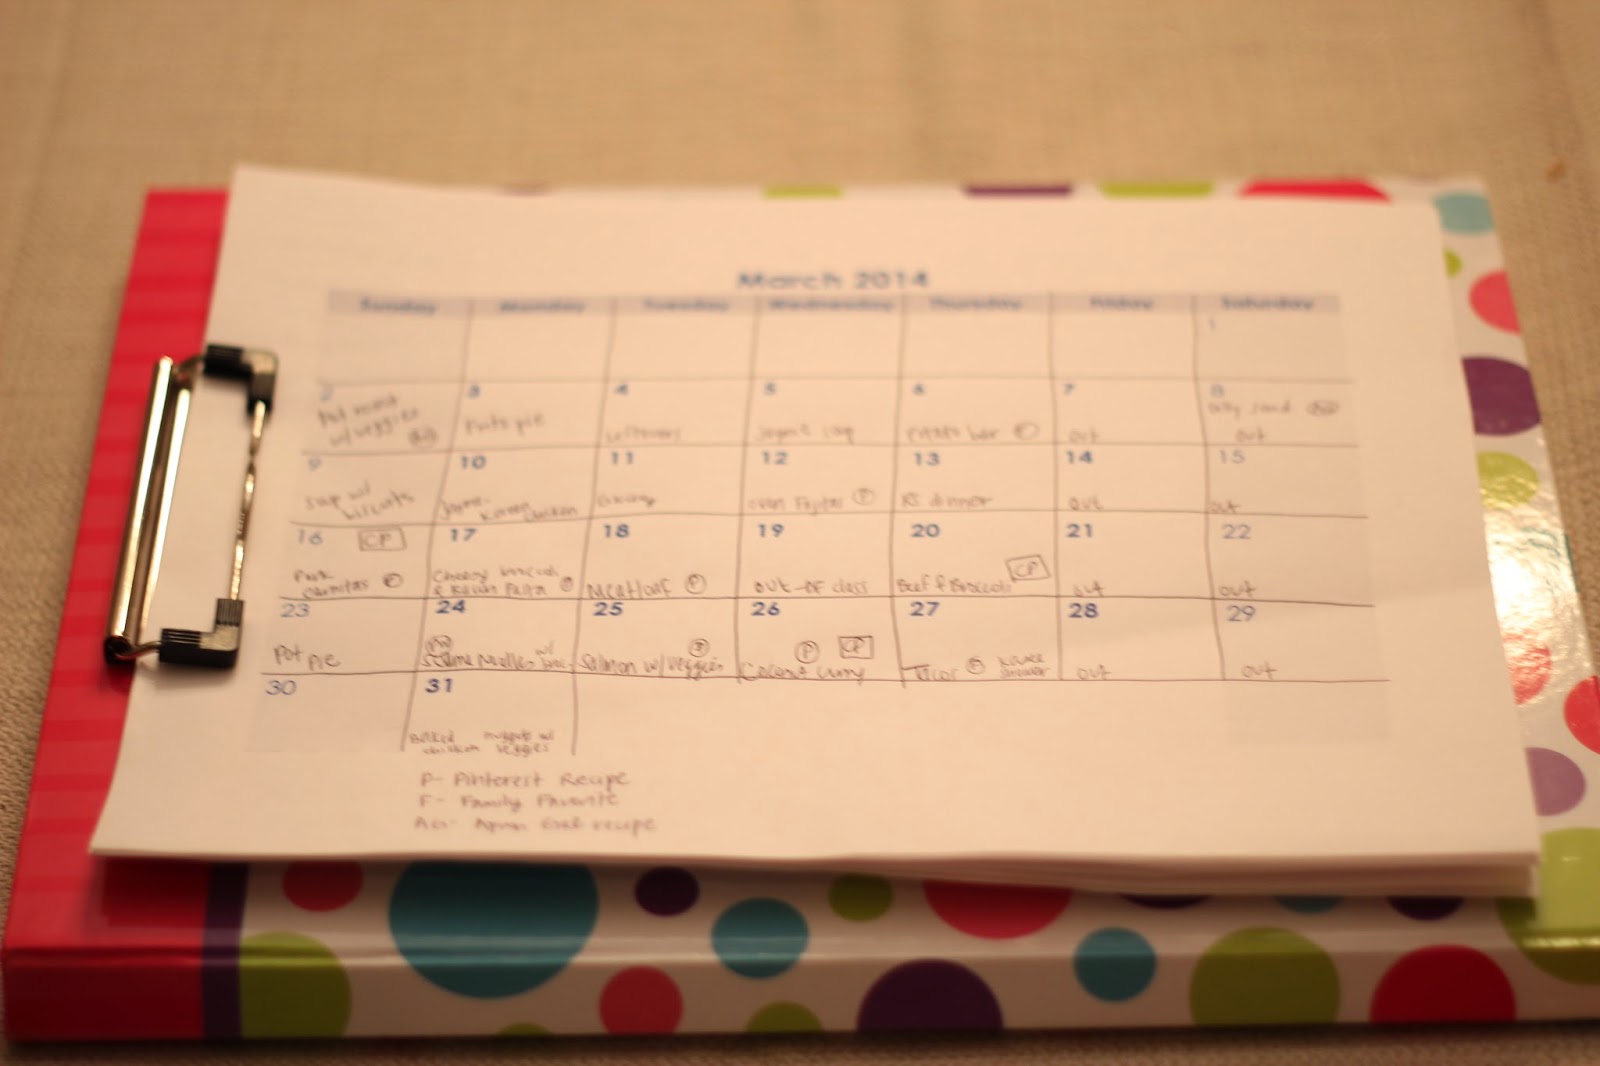 March 2014
Sunday Monday Tuesday Wednesday Thursday Friday Saturday
1
2 3 4 5 6 7 8
Pot roast
w/ veggies
pie
leftovers
Potato bar
out
out
9 10 11 12 13 14 15
Soup w/
biscuits
Korean Chicken
oven Fajitas P
RS dinner
out
out
16 CP 17 18 19 20 21 22
Pork
Carnitas P
Cheesy
Pasta
Meatloaf P
out-of class
Beef & Broccoli CP
out
out
23 24 25 26 27 28 29
Pot
Pie
w/
Salmon w/ veggies P
P CP
Coconut curry
Tacos
shower
out
out
30 31
Baked
chicken
nuggets w/
veggies
P- Pinterest Recipe
F- Family Favorite
recipe